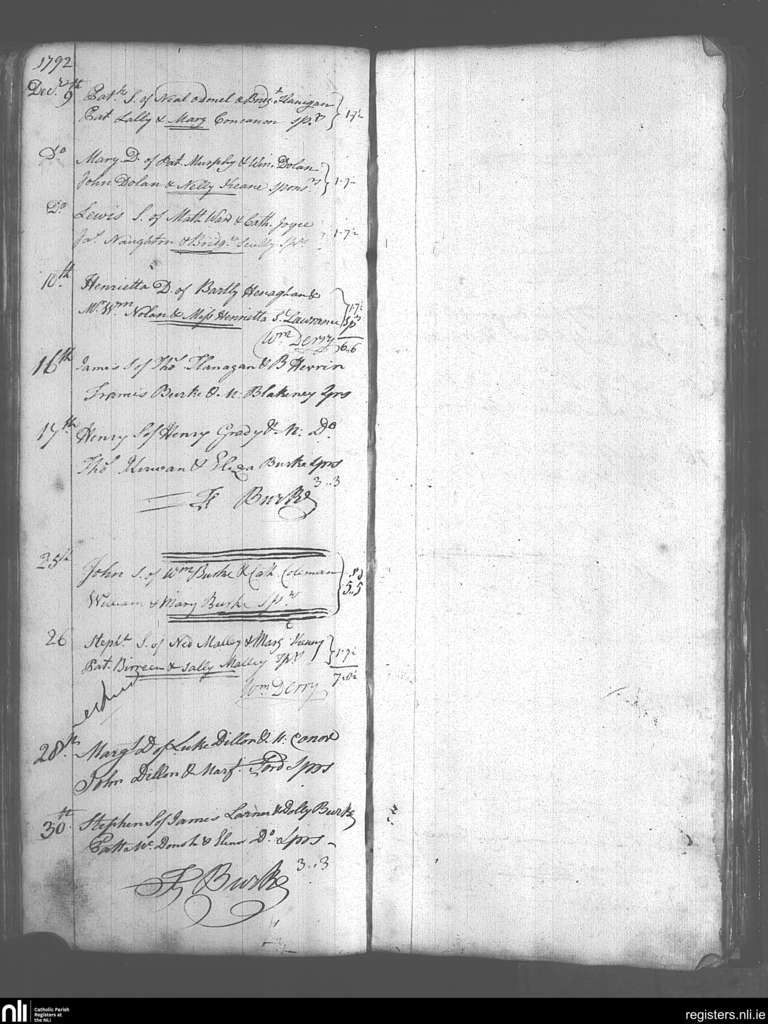 1792
Decr 9th Patk S. of Neal Odonel & Bridgt Flanigan
Pat Lally & Mary Concanon Sprs } 1-7½
Do Mary D. of Pat. Murphy & Win. Dolan
John Dolan & Nelly Heane Sponsrs } 1-7½
Do Lewis S. of Matt. Ward & Cath. Joyce
Jas. Naughton & Bridgt Scully Sprs } 1-7½
10th Henrietta D. of Bartly Heneghan &
Mr. Wm Nolan & Miss Henrietta St Lawrance
Wm Derry 6..6
16th James S of Thos Flanagan & B Hevrin
Francis Burke & M. Blakeney Sprs
17th Henry S of Henry Grady & M. Do
Thos Kirwan & Eliza Burke Sprs
3..3
F Burke
25th John S. of Wm Burke & Cath. Coleman
William & Mary Burke Sprs } 5..5
26 Stephn S. of Ned Malley & Mary
Pat. Birreen & Sally Malley Sprs } 1-7½
Wm Derry
28th Margt D of Luke Dillon & M. Conor
John Dillon & Margt. Ford Sprs
30th Stephen S of James Larner & Dolly Burke
Patt Mc Donoh & Elenr Do Sprs
3..3
F Burke
nli Catholic Parish
Registers at
the NLI
registers.nli.ie